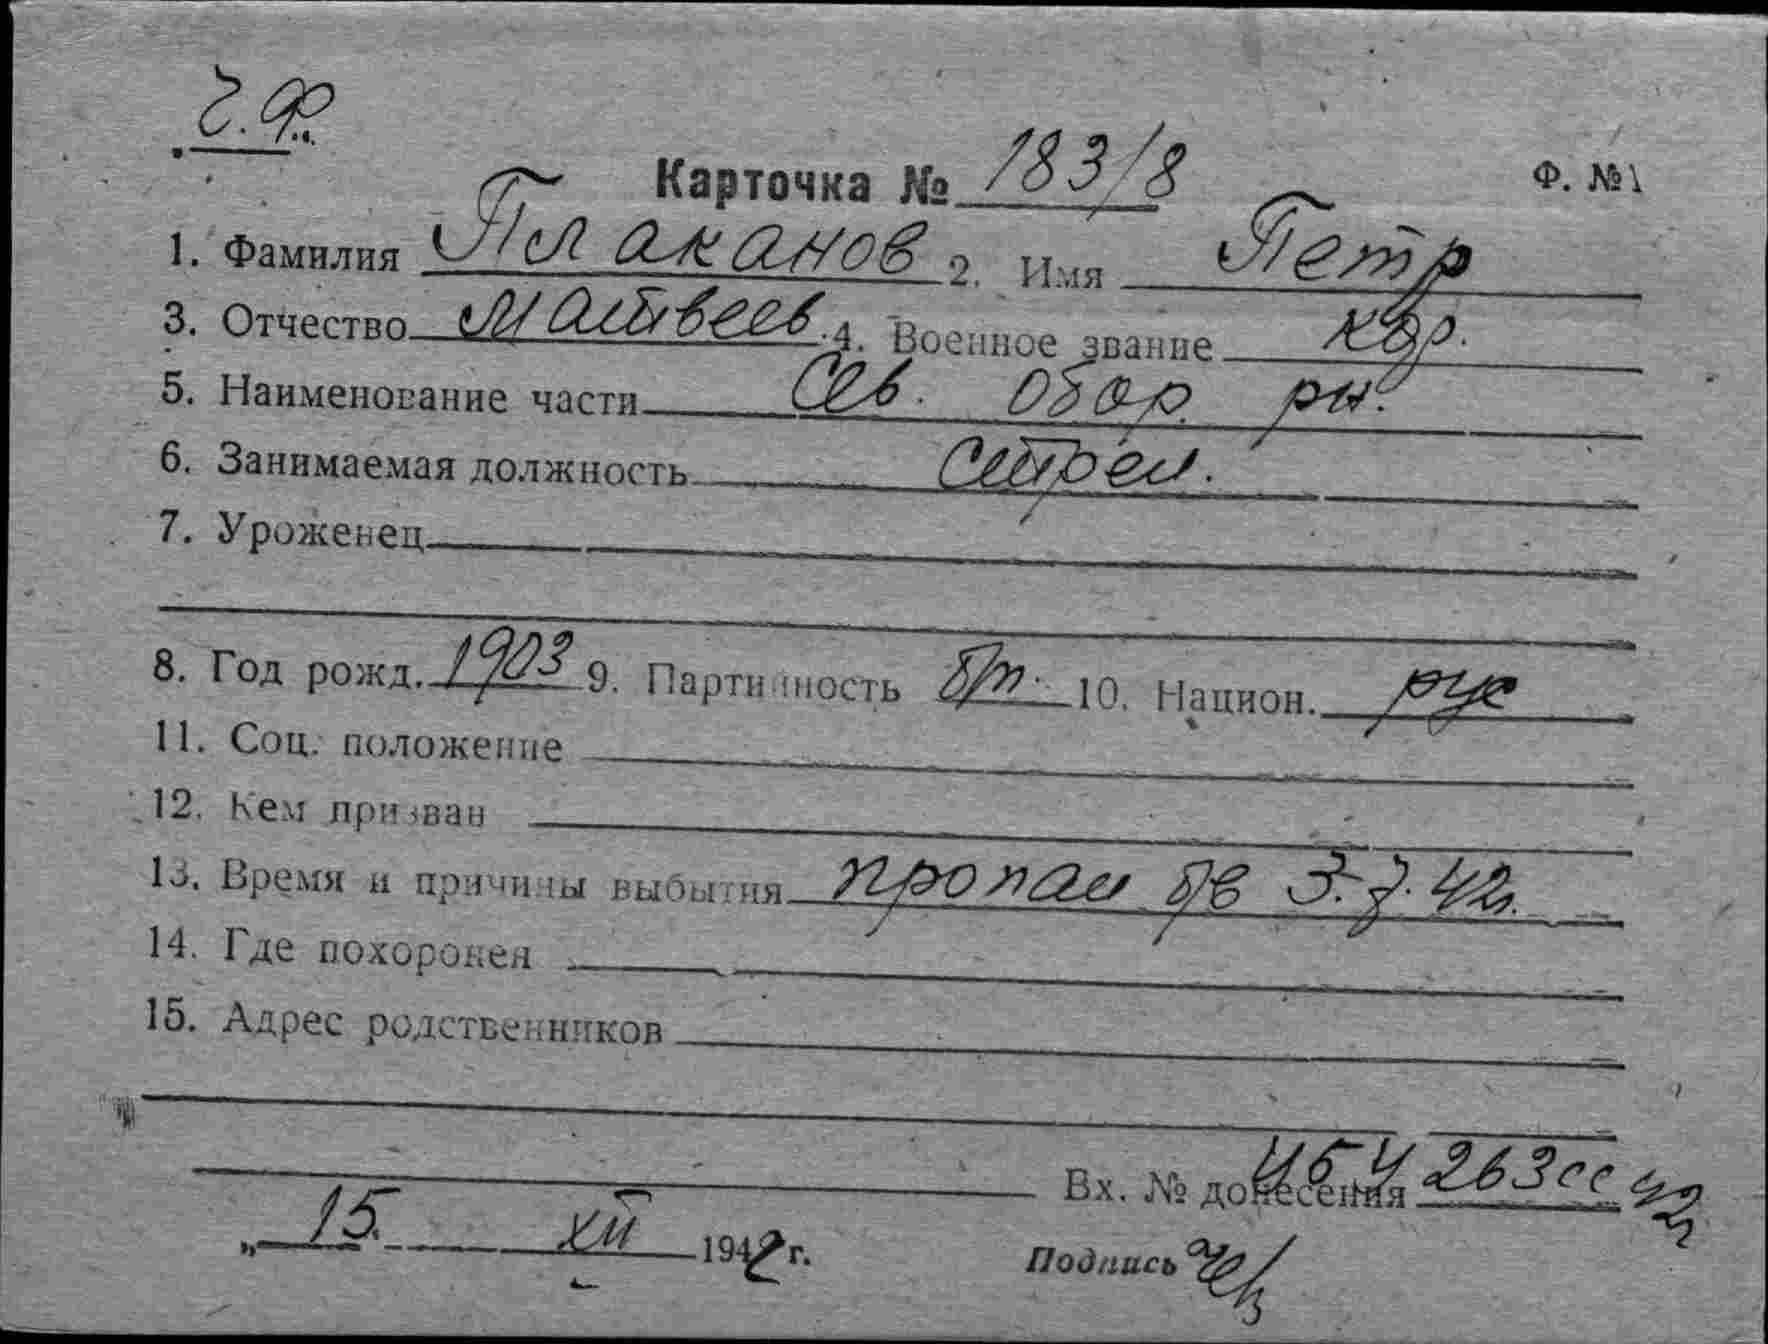 Ч.Ф.
Карточка № 183/8 Ф. №1
1. Фамилия Плаканов 2. Имя Петр
3. Отчество Матвеев. 4. Военное звание кдр.
5. Наименование части Сев. Обор. рн.
6. Занимаемая должность Стрел.
7. Уроженец
8. Год рожд. 1903 9. Партийность б/п. 10. Национ. рус
11. Соц. положение
12. Кем призван
13. Время и причины выбытия пропал б/в 3.7.42г.
14. Где похоронен
15. Адрес родственников
Вх. № донесения 263сс 42г
„15. XII 1942 г. Подпись